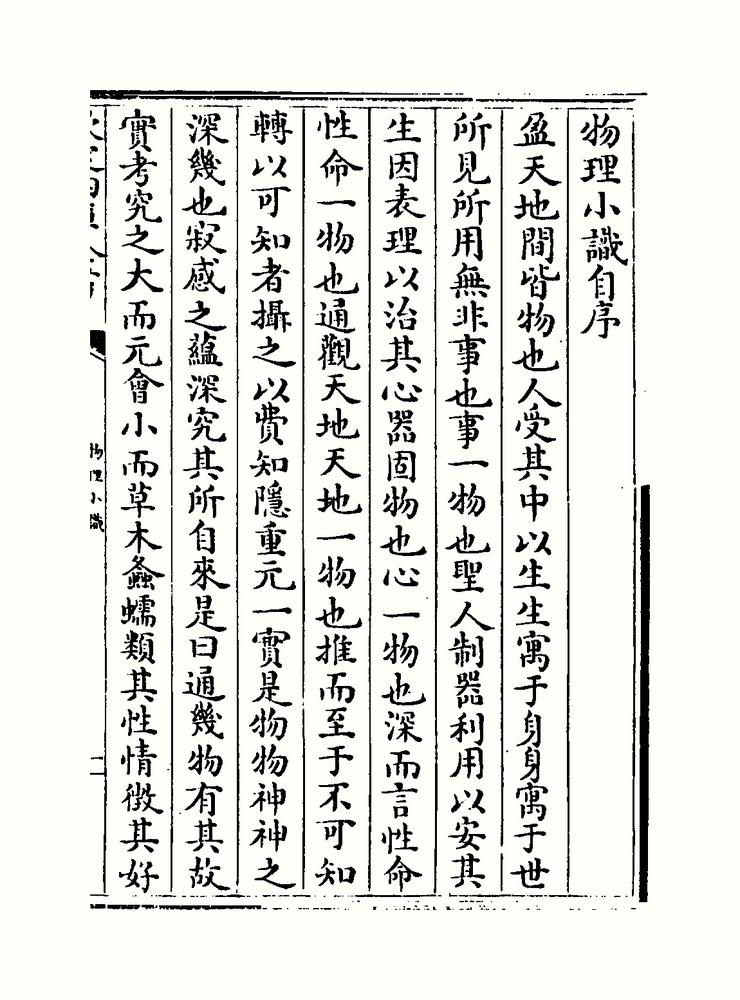 物理小識自序
盈天地間皆物也人受其中以生生寓于身身寓于世
所見所用無非事也事一物也聖人制器利用以安其
生因表理以治其心器固物也心一物也深而言性命
性命一物也通觀天地天地一物也推而至于不可知
轉以可知者攝之以費知隱重元一實是物物神神之
深幾也寂感之蘊深究其所自來是曰通幾物有其故
實考究之大而元會小而草木螽蠕類其性情徵其好
物理小識
二